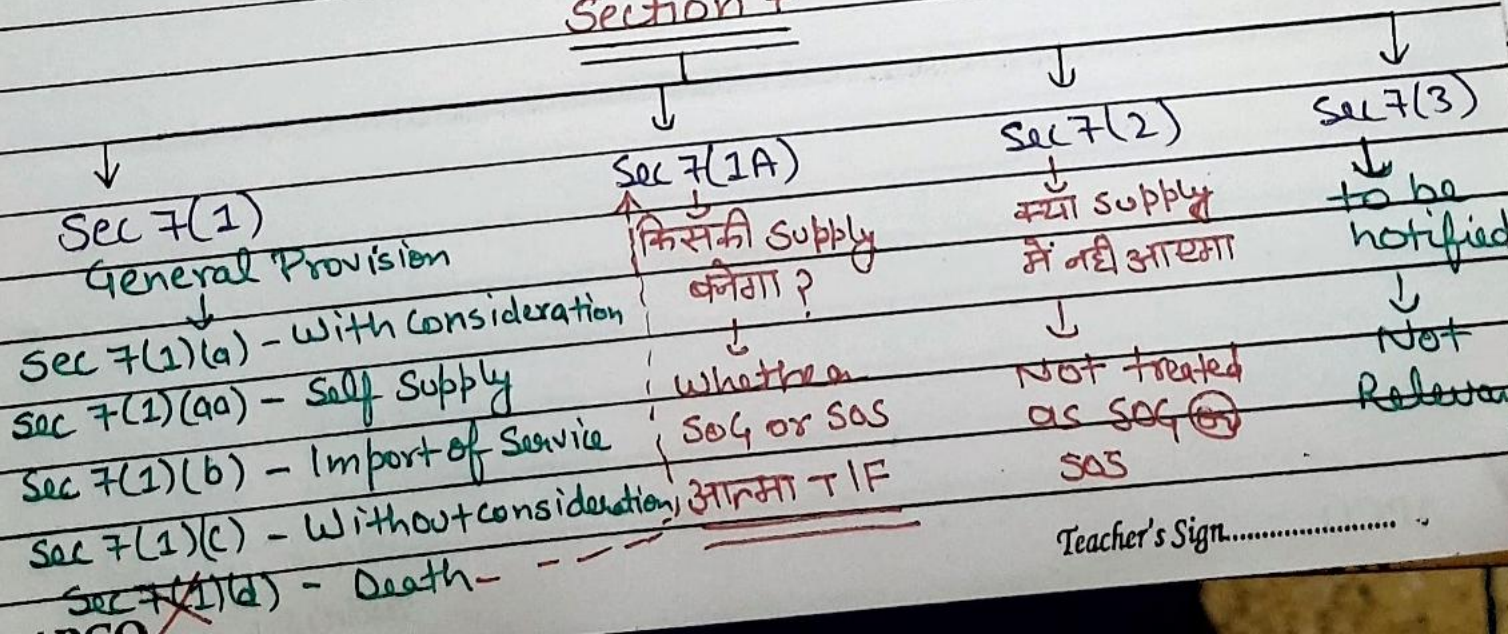 Section 7
Sec 7(1)
General Provision
Sec 7(1)(a) - With Consideration
Sec 7(1)(aa) - Self Supply
Sec 7(1)(b) - Import of Service
Sec 7(1)(c) - Without consideration
Sec 7(1)(d) - Death
Sec 7(1A)
किसकी supply
बनेगा ?
Whether
SOG or SOS
आत्मा TIF
Sec 7(2)
क्या supply
में नही आएगा
Not treated
as SOG or
SOS
Sec 7(3)
to be
notified
Not
Teacher's Sign.......................